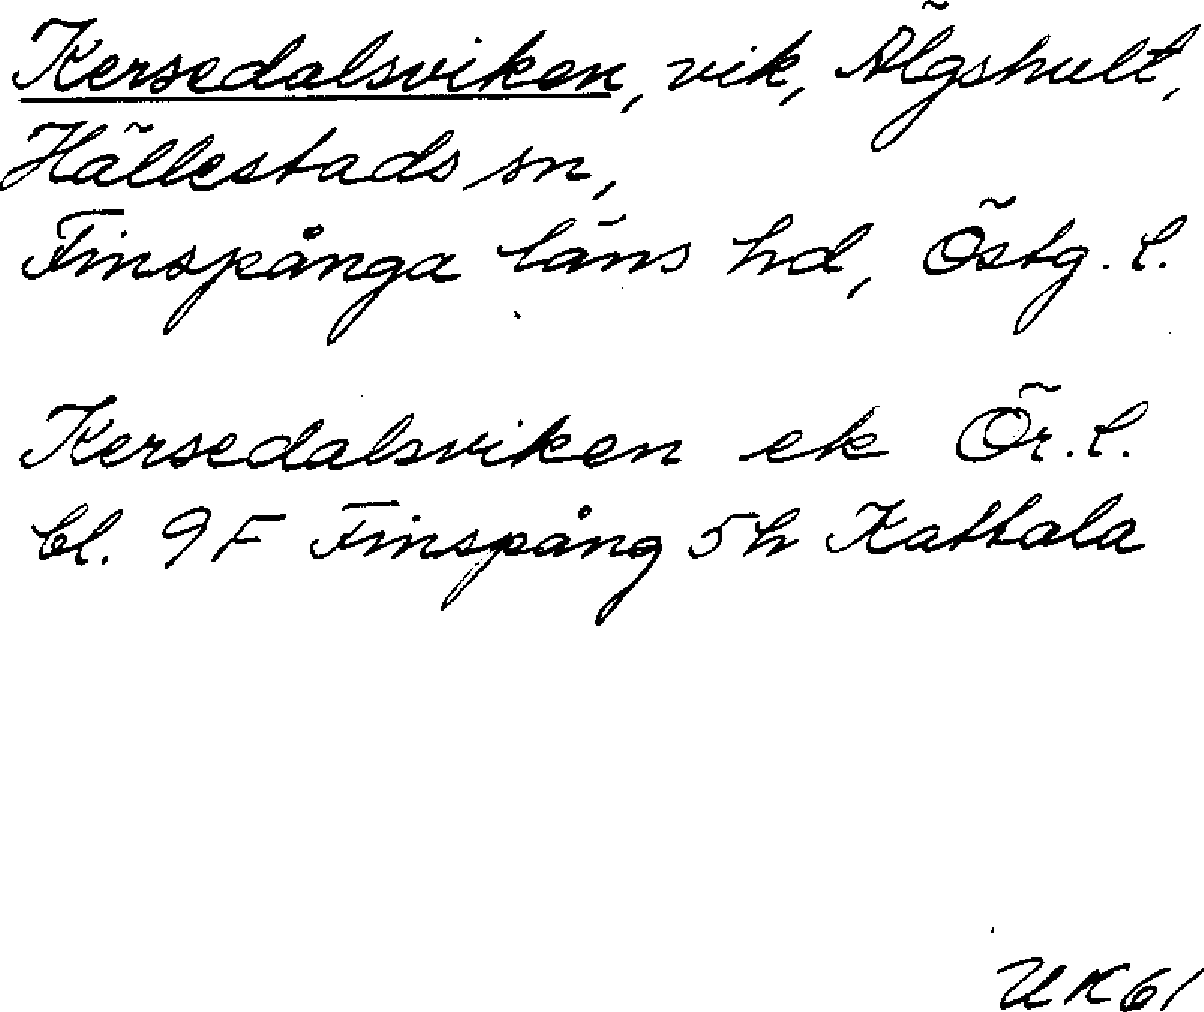 Kersedalsviken, vik, Älgshult,
Hällestads sn,
Finspånga läns hd, Östg. l.
Kersedalsviken ek Ör. l.
bl. 9F Finspång 5h Kattala
UK61